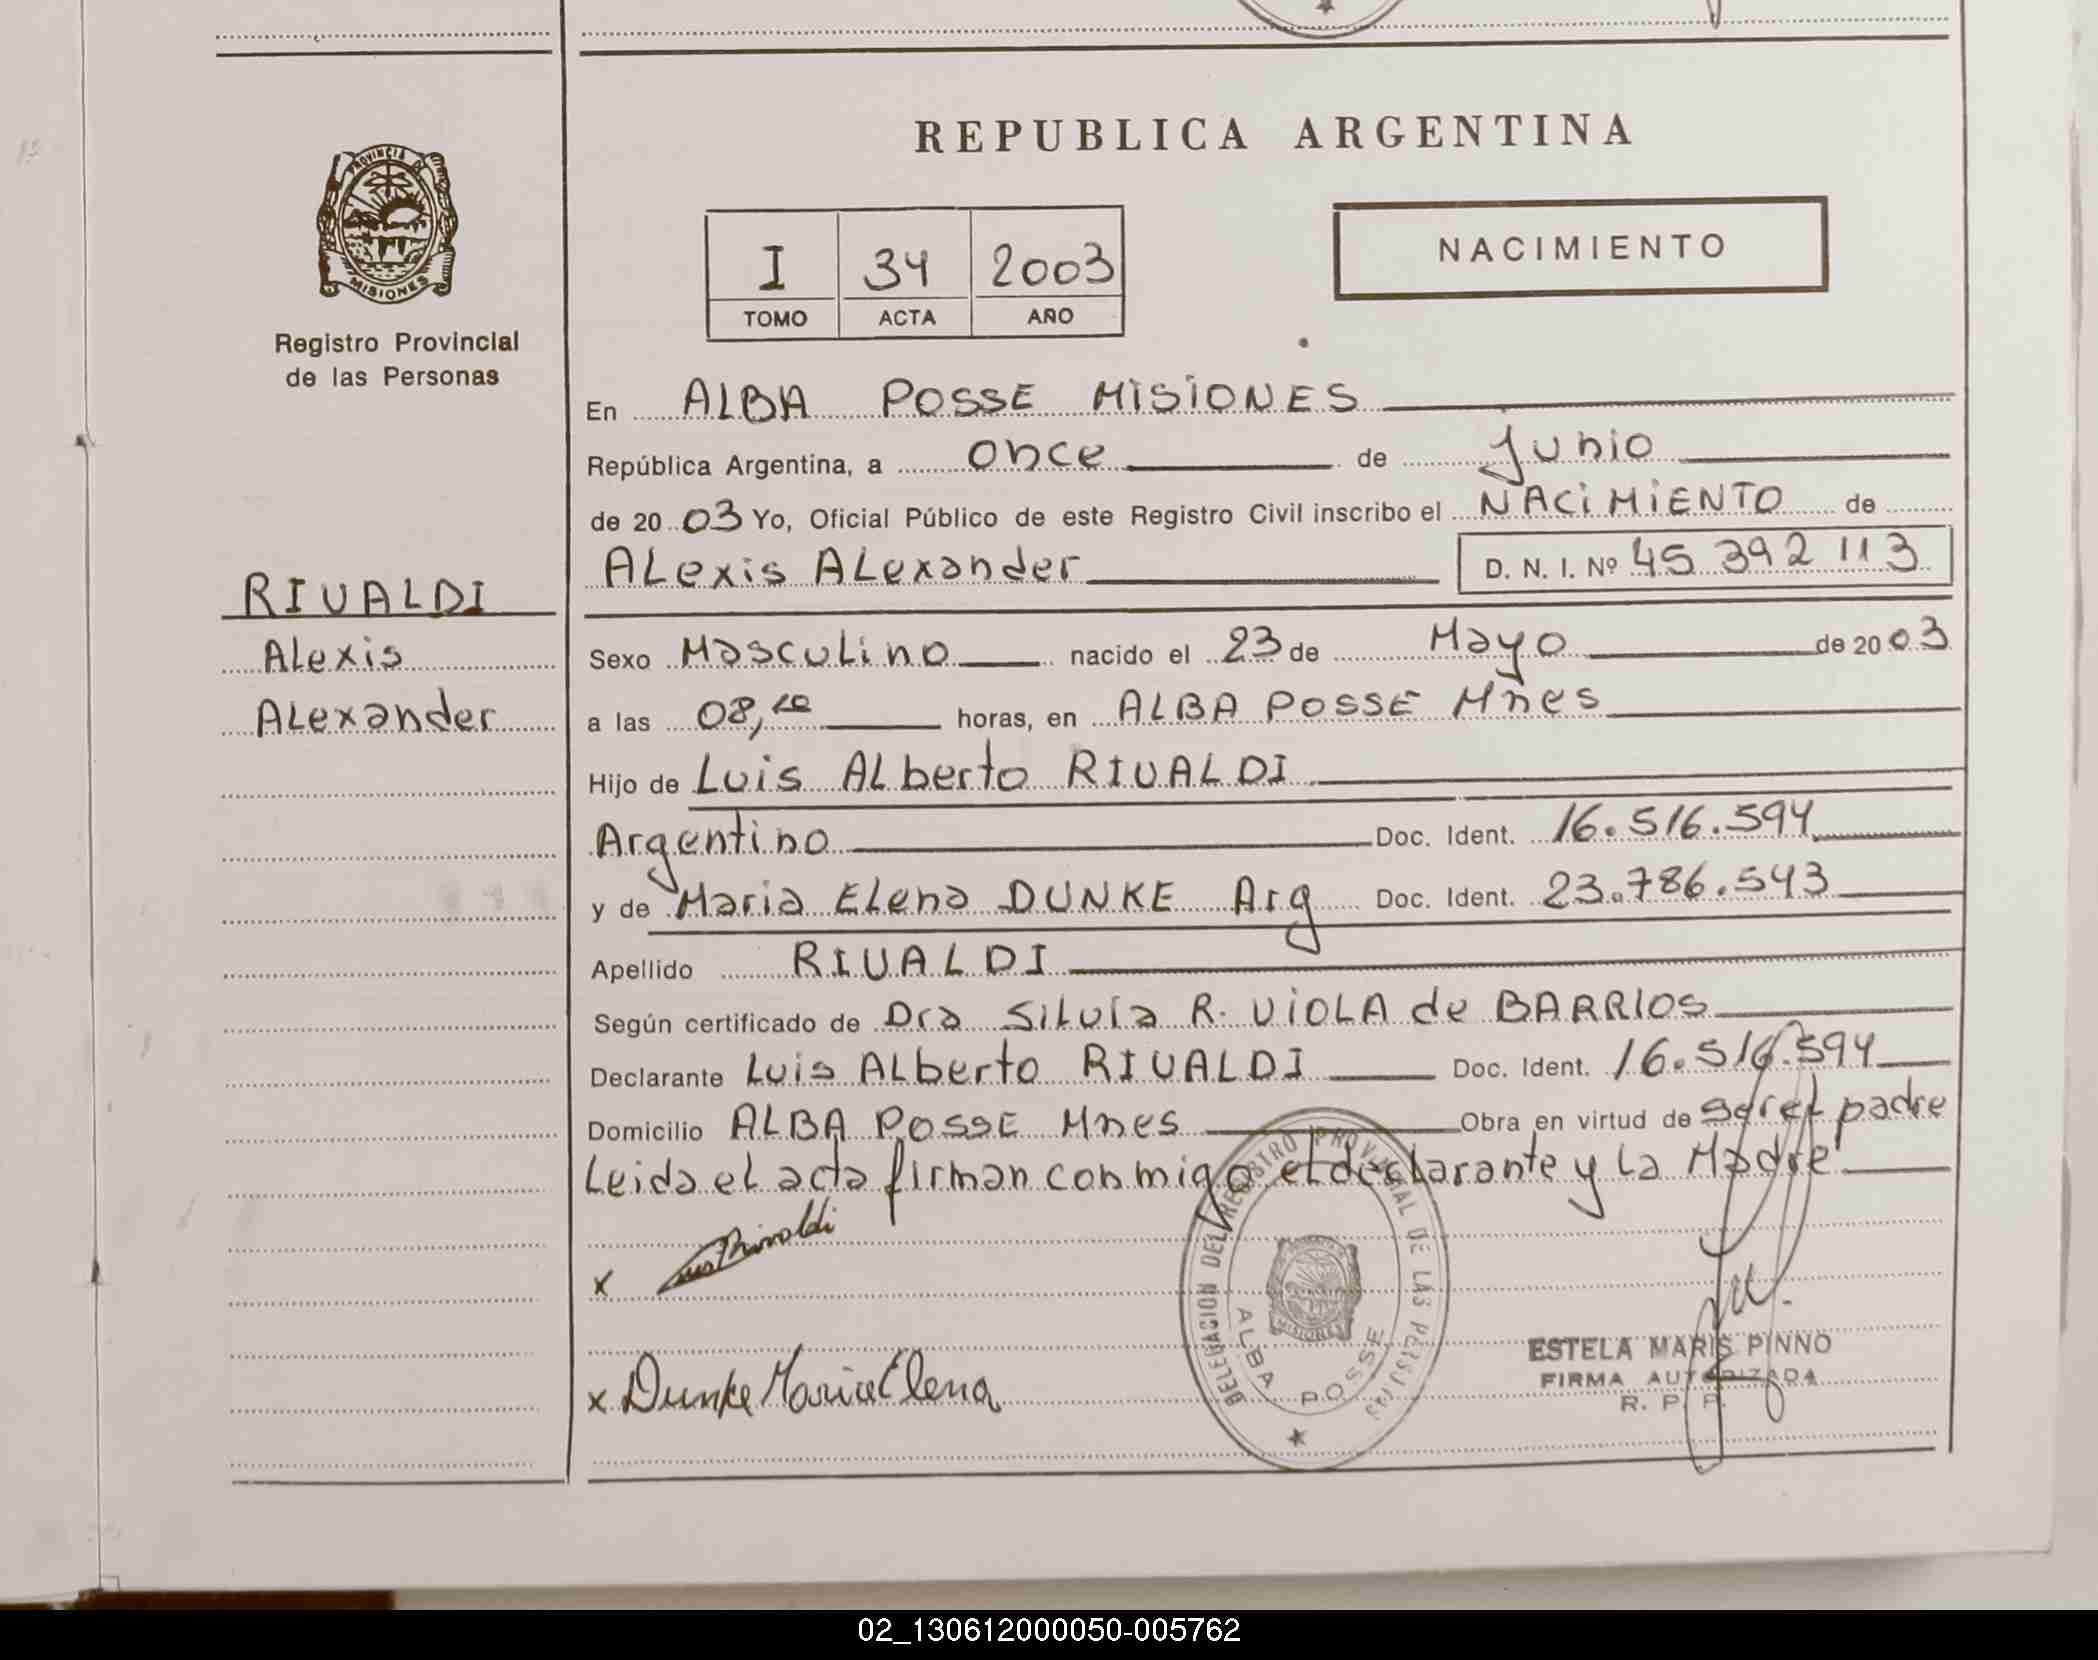 REPUBLICA ARGENTINA
PROVINCIA DE
MISIONES
Registro Provincial
de las Personas
I 34 2003
TOMO ACTA AÑO
NACIMIENTO
En ALBA POSSE MISIONES
República Argentina, a once de Junio
de 2003 Yo, Oficial Público de este Registro Civil inscribo el NACIMIENTO de
ALexis ALexander D. N. I. Nº 45 392 113
RIVALDI
ALexis
ALexander
Sexo MascuLino nacido el 23 de Mayo de 2003
a las 08, horas, en ALBA POSSE Mnes
Hijo de Luis ALberto RIVALDI
Argentino Doc. Ident. 16.516.594
y de Maria ELena DUNKE Arg Doc. Ident. 23.786.543
Apellido RIVALDI
Según certificado de Dra SiLvia R. VIOLA de BARRIOS
Declarante Luis ALberto RIVALDI Doc. Ident. 16.516.594
Domicilio ALBA POSSE Mnes Obra en virtud de ser eL padre
Leida eL acta firman conmigo eL declarante y La Madre
x Luis Rivaldi
x Dunke Maria Elena
DELEGACION DEL REGISTRO PROVINCIAL DE LAS PERSONAS
MISIONES
ALBA POSSE
ESTELA MARIS PINNO
FIRMA AUTORIZADA
R. P. P.
02_130612000050-005762